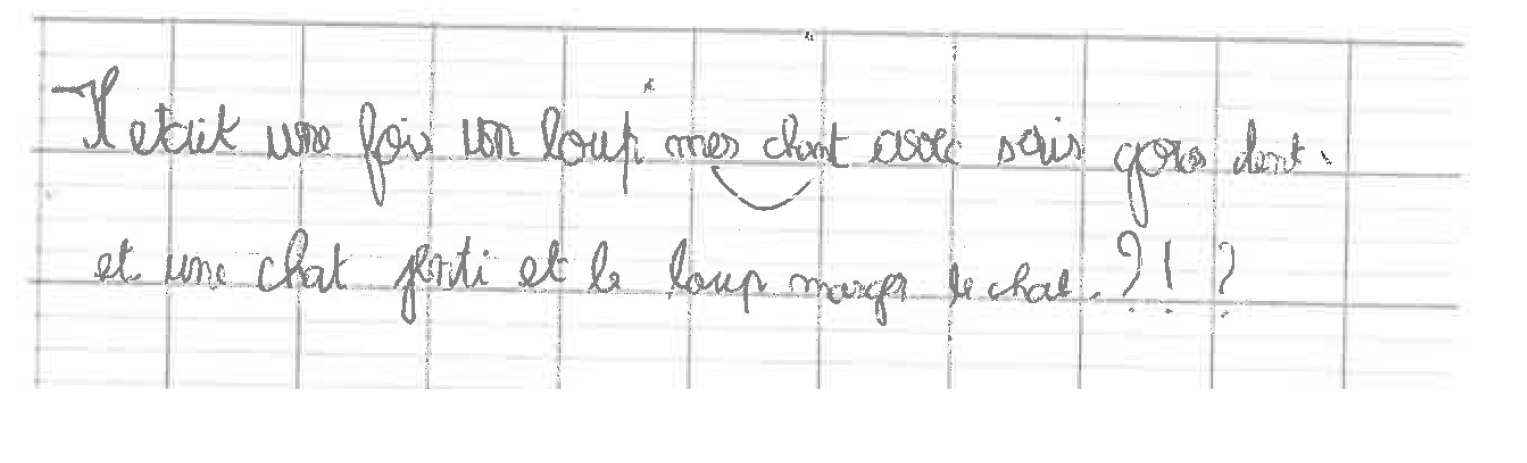 Il etait une fois un loup mes chant avec sais gros dent.
et une chat genti et le loup manger le chat. ? ! ?